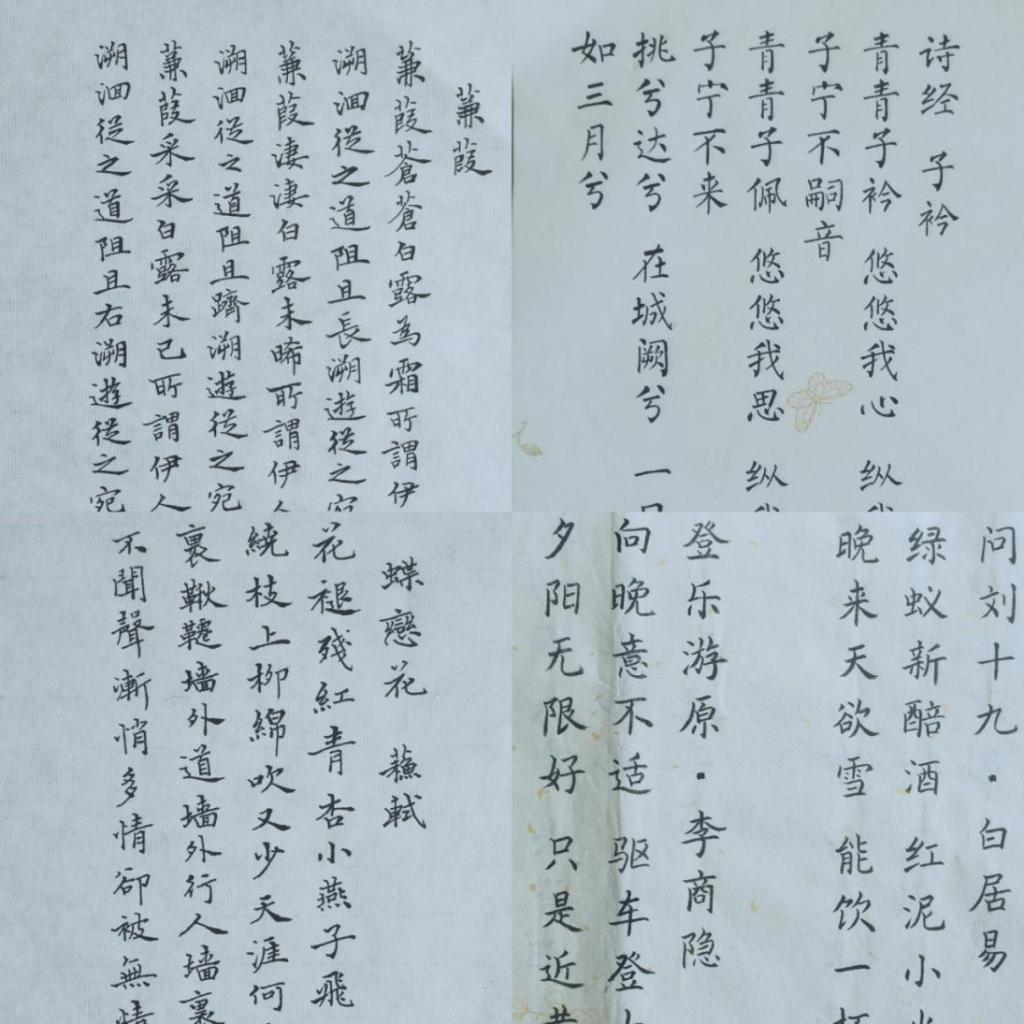 蒹葭
蒹葭蒼蒼白露為霜所謂伊
溯洄從之道阻且長溯遊從之宛
蒹葭淒淒白露未晞所謂伊人
溯洄從之道阻且躋溯遊從之宛
蒹葭采采白露未已所謂伊人
溯洄從之道阻且右溯遊從之宛
诗经 子衿
青青子衿 悠悠我心 纵
子宁不嗣音
青青子佩 悠悠我思 纵
子宁不来
挑兮达兮 在城阙兮 一
如三月兮
蝶戀花 蘓軾
花褪殘紅青杏小燕子飛
繞枝上柳綿吹又少天涯何
裏鞦韆墙外道墙外行人墙裏
不聞聲漸悄多情卻被無情
问刘十九·白居易
绿蚁新醅酒 红泥小
晚来天欲雪 能饮一
登乐游原·李商隐
向晚意不适 驱车登
夕阳无限好 只是近